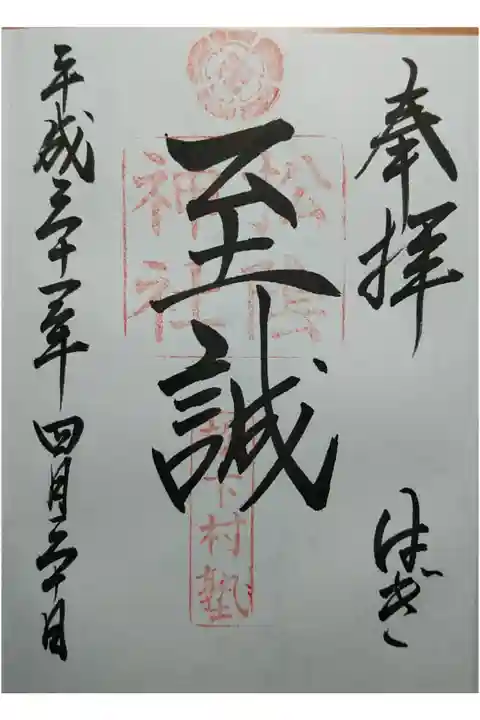 奉拝
はぎ
至誠
松陰
神社
松下村塾
平成三十一年四月三十日